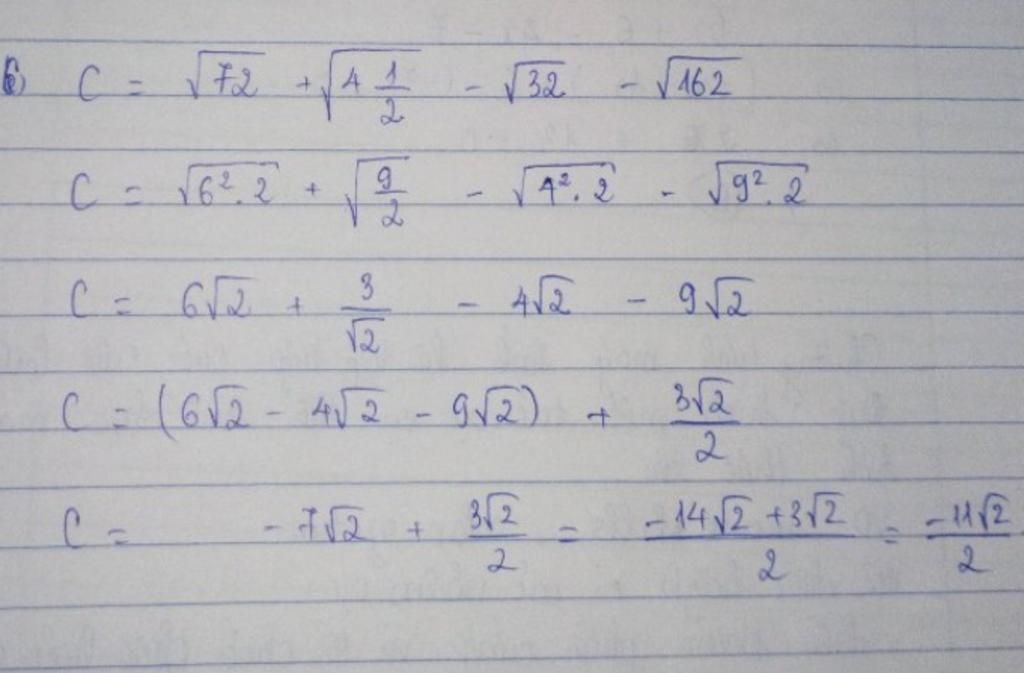 c) C = √72 + √(4 1/2) - √32 - √162
C = √(6². 2) + √(9/2) - √(4². 2) - √(9². 2)
C = 6√2 + 3/√2 - 4√2 - 9√2
C = (6√2 - 4√2 - 9√2) + 3√2/2
C = -7√2 + 3√2/2 = (-14√2 + 3√2)/2 = -11√2/2